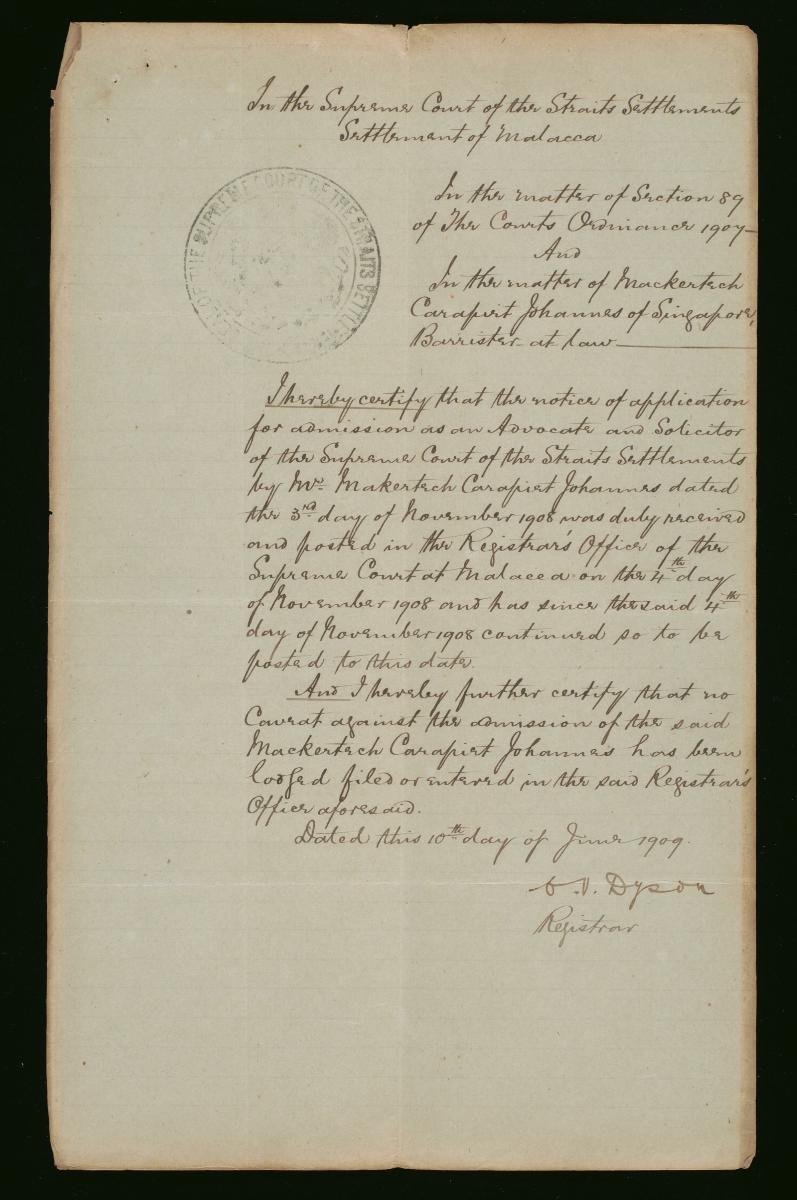 In the Supreme Court of the Straits Settlements
Settlement of Malacca
OF THE SUPREME COURT OF THE STRAITS SETTLE
In the matter of Section 89
of The Courts Ordinance 1907—
And
In the matter of Mackertech
Carapiet Johannes of Singapore,
Barrister at law
I hereby certify that the notice of application
for admission as an Advocate and Solicitor
of the Supreme Court of the Straits Settlements
by Mr. Makertech Carapiet Johannes dated
the 3rd day of November 1908 was duly received
and posted in the Registrar's Office of the
Supreme Court at Malacca on the 4th day
of November 1908 and has since the said 4th
day of November 1908 continued so to be
posted to this date.
And I hereby further certify that no
Caveat against the admission of the said
Mackertech Carapiet Johannes has been
lodged filed or entered in the said Registrar's
Office aforesaid.
Dated this 10th day of June 1909.
Dyson
Registrar